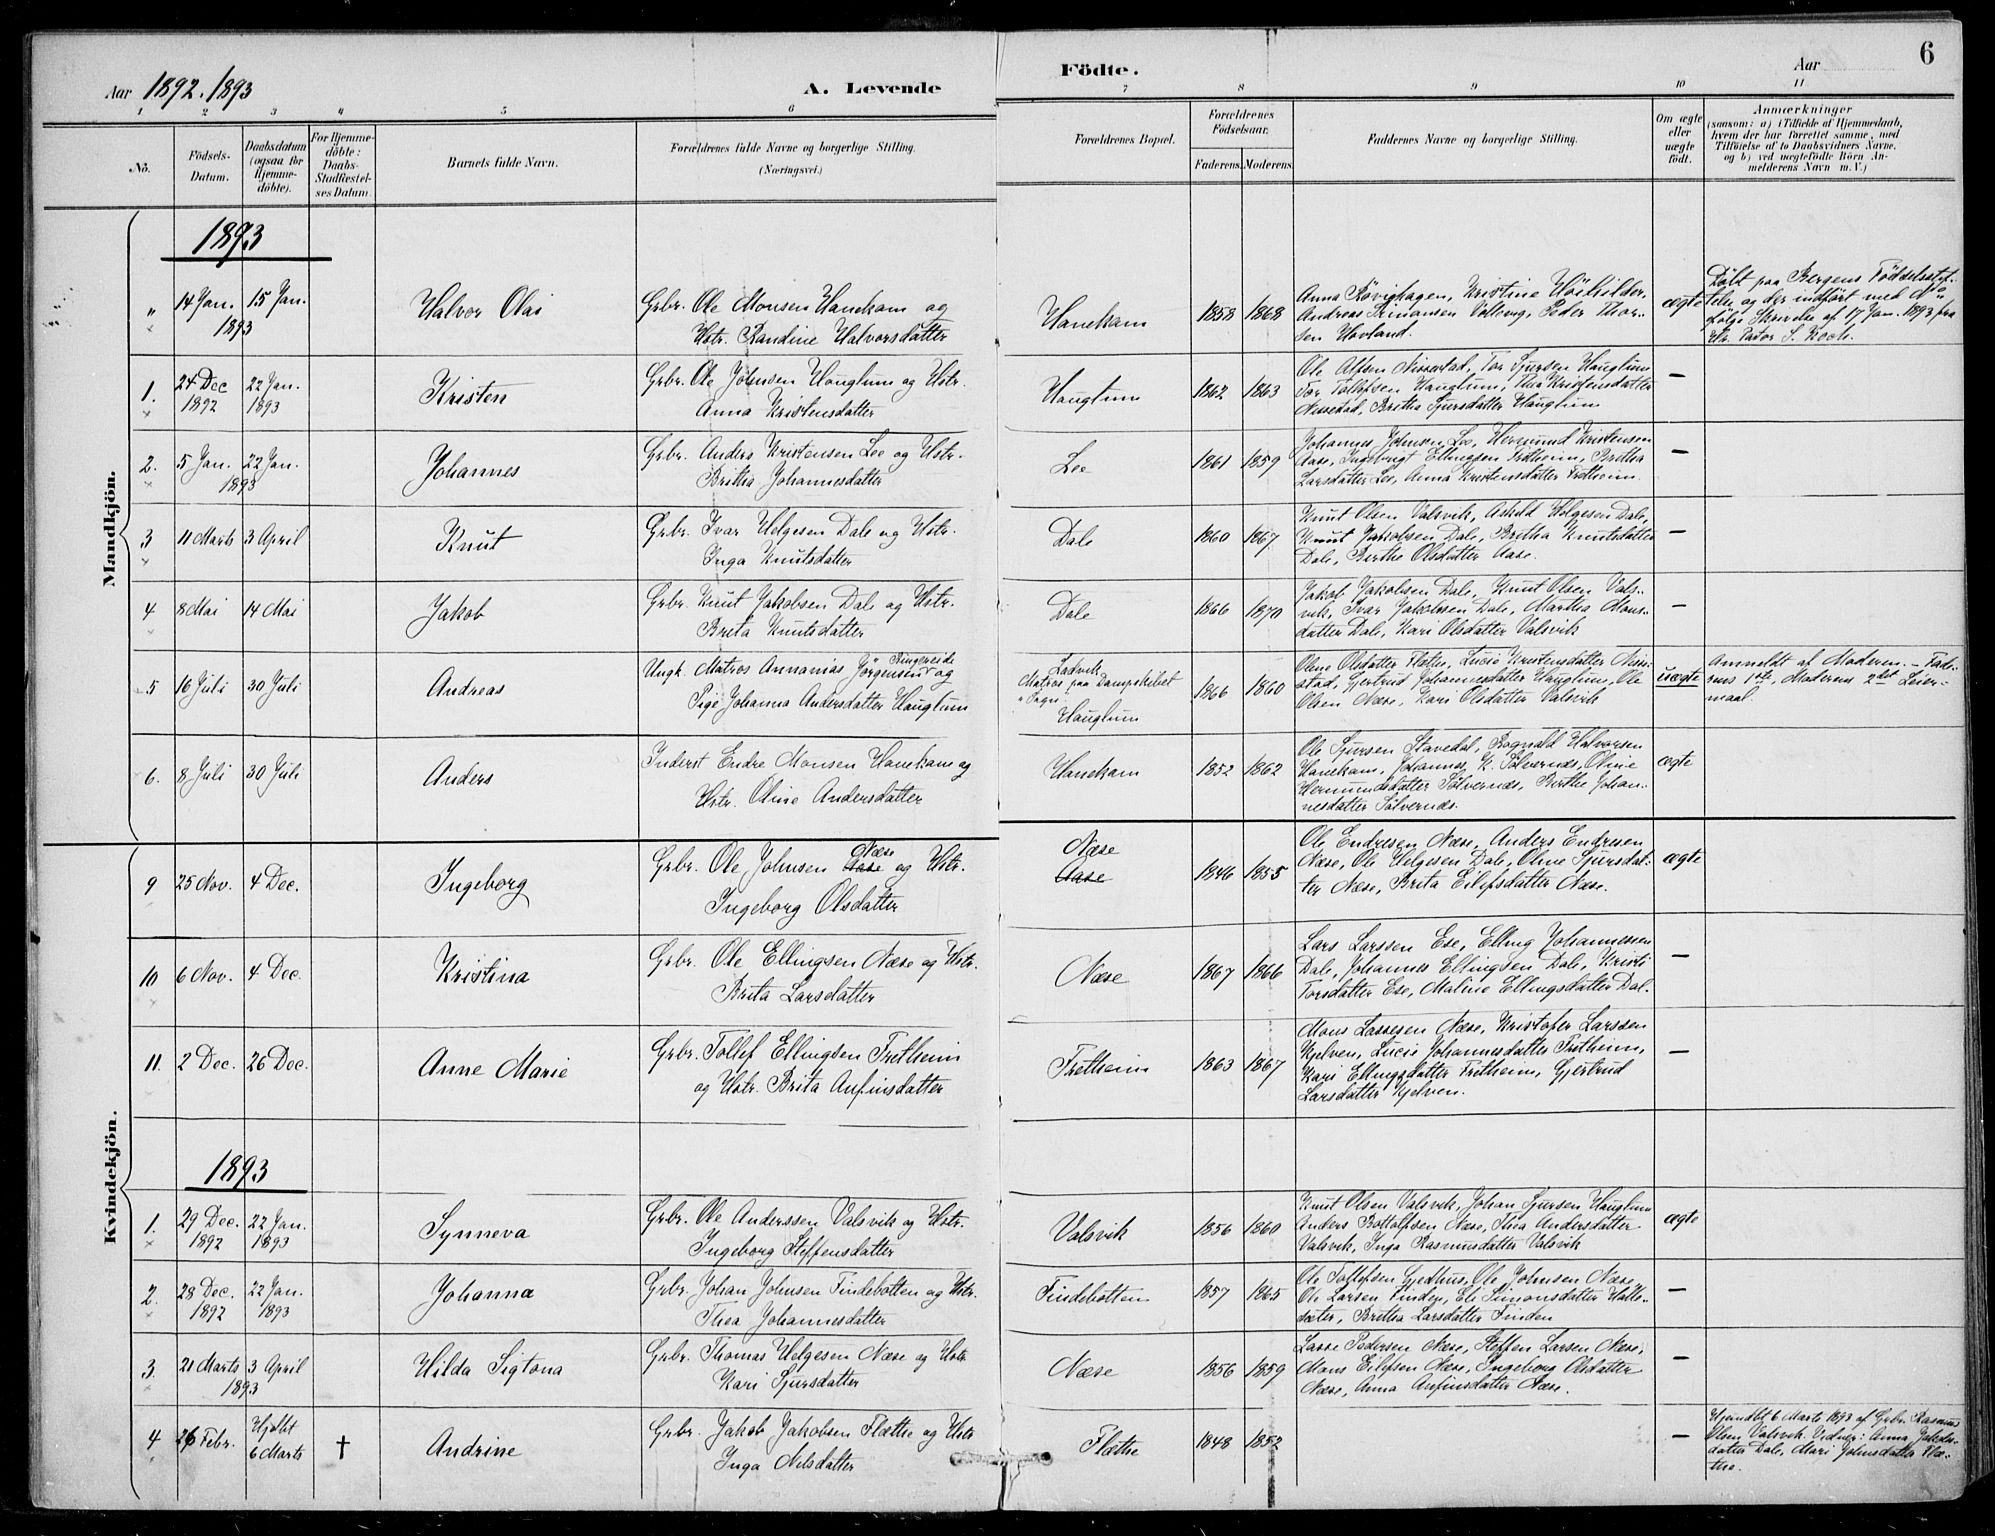 6
Aar 1892. 1893
A. Levende
Födte.
Aar
1 2 3 4 5 6 7 8 9 10 11
No.
Födsels-Datum.
Daabsdatum (ogsaa for Hjemme-döbte).
For Hjemme-döbte: Daabs-Stadfæstel-ses Datum.
Barnets fulde Navn.
Forældrenes fulde Navne og borgerlige Stilling. (Næringsvei.)
Forældrenes Bopæl.
Forældrenes Födselsaar.
Faderens. Moderens.
Faddernes Navne og borgerlige Stilling.
Om ægte eller uægte födt.
Anmærkninger
(saasom: a) i Tilfælde af Hjemmedaab, hvem der har forrettet samme, med Tilföielse af to Daabsvidners Navne, og b) ved uægtefödte Börn An-melderens Navn m.V.)
Mandkjön.
1893
" 14 Jan. 15 Jan. 1893 Halvor Olai
Grbr. Ole Monsen Hanekam og
Hstr. Randine Halvorsdatter
Hanekam 1858 1868
Anna Rövighagen, Kristine
Andreas Vattevig, Peder Thor-
sen Hovland.
ægte
Döbt paa Bergens Födselsstif-
telse og der indfört med No
fölge Skrivelse af 17 Jan. 1893 fra
Hr. Pastor S. Koch.
1. 24 Dec 1892 22 Jan. 1893 Kristen
Grbr. Ole Johnsen Hauglum og Hstr.
Anna Kristensdatter
Hauglum 1862 1863
Ole Alfsen Nissestad, Tor Sjursen Hauglum
Tor Tollefsen Hauglum, Kristensdatter
Nissestad, Britha Sjursdatter Hauglum
—
2. 5 Jan. 22 Jan. 1893 Johannes
Grbr. Anders Kristensen Lee og Hstr.
Britha Johannesdatter
Lee 1861 1859
Johannes Johnsen Lee, Hermund Kristensen
Aase, Ingebrigt Ellingsen Fretheim, Britha
Larsdatter Lee, Anna Kristensdatter Fretheim.
—
3 11 Marts 3 April Knut
Grbr. Ivar Helgesen Dale og Hstr.
Inga Knutsdatter
Dale 1860 1867
Knut Olsen Valsvik, Askild Helgesen Dale,
Knut Jakobsen Dale, Britha Knutsdatter
Dale, Birthe Olsdatter Aase.
—
4 8 Mai 14 Mai Jakob
Grbr. Knut Jakobsen Dale og Hstr.
Brita Knutsdatter
Dale 1866 1870
Jakob Jakobsen Dale, Knut Olsen Vals-
vik, Ivar Jakobsen Dale, Martha Mons-
datter Dale, Kari Olsdatter Valsvik
—
5 16 Juli 30 Juli Andreas
Ungk. Matros Annanias Jörgensen Ringereide og
Pige Johanna Andersdatter Hauglum
Ladvik
Matros paa Dampskibet
Hauglum
1866 1860
Oline Olsdatter Flette, Lucie Kristensdatter Nisse-
stad, Gjertrud Johannesdatter Hauglum, Ole
Olsen Næse, Kari Olsdatter Valsvik
uægte
Anmeldt af Moderen. - Fade-
rens 1ste, Moderens 2det Leier-
maal.
6. 8 Juli 30 Juli Anders
Inderst Endre Monsen Hanekam og
Hstr. Oline Andersdatter
Hanekam 1852 1862
Ole Sjursen Stavedal, Ragnald Halvorsen
Hanekam, Johannes K. Sölvernæs, Oline
Hermundsdatter Sölvernæs, Birthe Johan-
nesdatter Sölvernæs.
ægte
Kvindekjön.
9 25 Nov. 4 Dec. Ingeborg
Grbr. Ole Johnsen Aase Næse og Hstr.
Ingeborg Olsdatter
Næse
Aase
1846 1855
Ole Endresen Næse, Anders Endresen
Næse, Ole Helgesen Dale, Oline Sjursdat-
ter Næse, Brita Eilefsdatter Næse.
ægte
10 6 Nov. 4 Dec. Kristina
Grbr. Ole Ellingsen Næse og Hstr.
Brita Larsdatter
Næse 1867 1866
Lars Larssen Ese, Elling Johannessen
Dale, Johannes Ellingsen Dale, Kristi
Torsdatter Ese, Maline Ellingsdatter Dal.
—
11. 2 Dec. 26 Dec. Anne Marie
Grbr. Tollef Ellingsen Fretheim
og Hstr. Brita Anfinsdatter
Fretheim 1863 1867
Mons Lassesen Næse, Kristofer Larssen
Kjelven, Lucie Johannesdatter Fretheim,
Kari Ellingsdatter Fretheim, Gjertrud
Larsdatter Kjelven.
—
1893
1. 29 Dec. 1892 22 Jan. 1893 Synneva
Grbr. Ole Anderssen Valsvik og Hstr.
Ingeborg Steffensdatter
Valsvik 1856 1860
Knut Olsen Valsvik, Johan Sjursen Hauglum
Anders Bottolfsen Næse, Thea Andersdatter
Valsvik, Inga Rasmusdatter Valsvik
ægte
2. 28 Dec. 1892 22 Jan. 1893 Johanna
Grbr. Johan Johnsen Findebotten og Hstr.
Thea Johannesdatter
Findebotten 1857 1865
Ole Tollefsen Gjedhus, Ole Johnsen Næse,
Ole Larsen Finden, Eli Simonsdatter Halle-
sæter, Britha Larsdatter Finden
—
3. 21 Marts 3 April 1893 Hilda Sigtona
Grbr. Thomas Helgesen Næse og Hstr.
Kari Sjursdatter
Næse 1856 1859
Lasse Pedersen Næse, Steffen Larsen Næse,
Mons Eilefsen Næse, Ingeborg Olsdatter
Næse, Anna Anfinsdatter Næse.
—
4 26 Febr. Hjdbt 6 Marts † Andrine
Grbr. Jakob Jakobsen Flæthe og Hstr
Inga Nilsdatter
Flæthe 1848 1852
—
Hjemdbt 6 Marts 1893 af Grbr. Rasmus
Olsen Valsvik. Vidner: Anna Jakobs-
datter Dale, Mari Johnsdatter Flæ-
the.